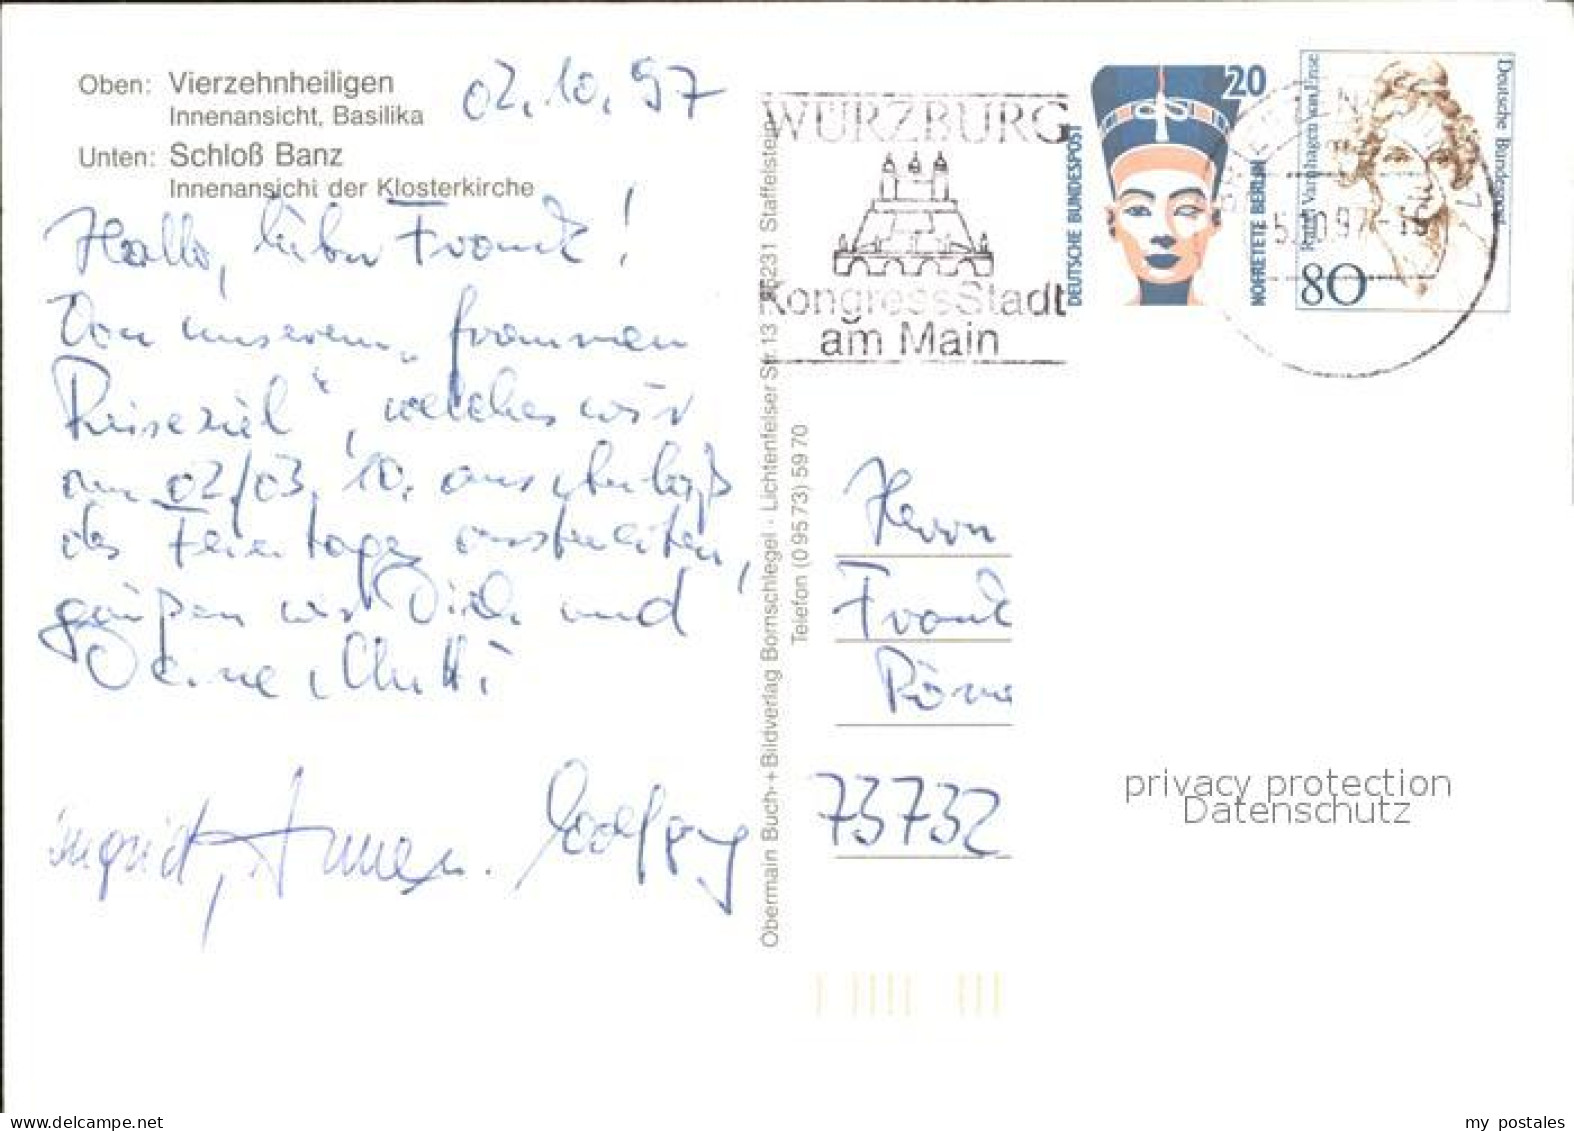 Oben: Vierzehnheiligen
Innenansicht, Basilika
Unten: Schloß Banz
Innenansicht der Klosterkirche
02.10.97
Hallo, lieber Frank!
Von unserem „frommen
Reiseziel“, welches wir
am 02/03.10. anschließlich
des Feiertages ansteuerten,
grüßen wir Dich und
Deine Mutti
Ingrid, Wolfgang
Obermain Buch-+Bildverlag Bornschlegel · Lichtenfelser Str. 13 · 96231 Staffelstein
Telefon (0 95 73) 59 70
WÜRZBURG
KongressStadt
am Main
20
DEUTSCHE BUNDESPOST
NOFRETETE BERLIN
Rahel Varnhagen von Ense
Deutsche Bundespost
80
5.10.97-16
Herrn
Frank
73732
privacy protection
Datenschutz
delcampe.net
my postales